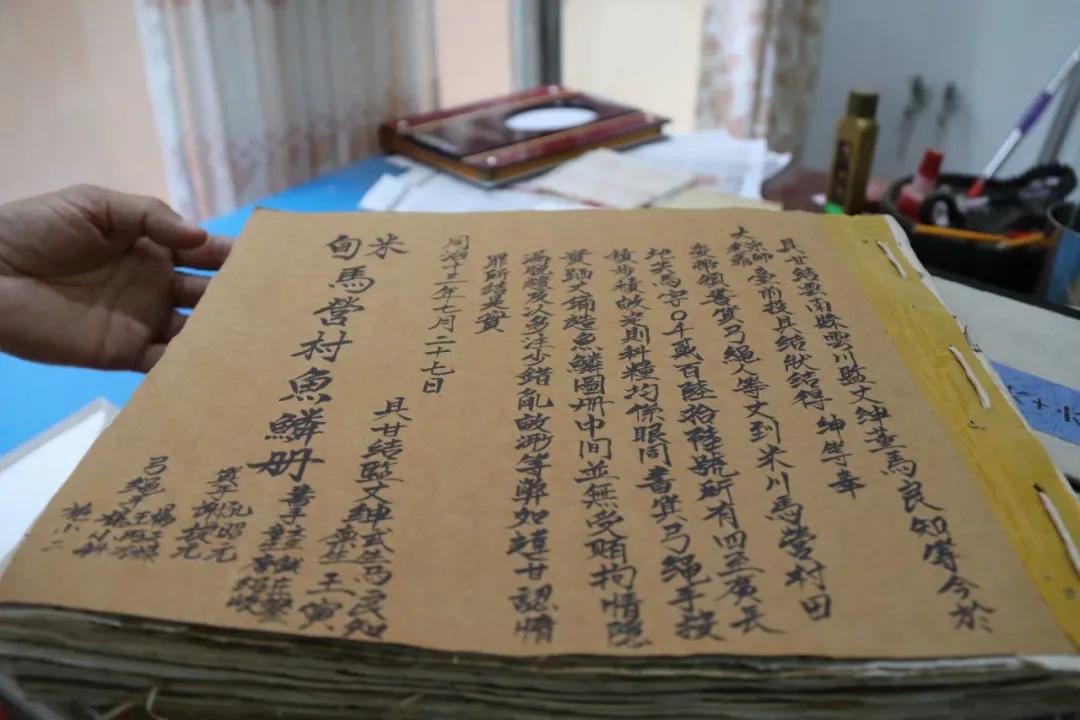 具甘結雲南縣雲川監丈紳耆馬良知等今於
大宗師
老爺臺前投具結狀結得 紳等奉
委帶領書算弓繩人等丈到米川馬營村田
地共馬字0千貳百陸拾陸號所有四至廣長
積步積畝定則科糧均係眼同書算弓繩手按
實踏丈鋪造魚鱗圖冊中間並無受賄拘情隱
漏脫離及以多注少錯亂畝冊等弊如違甘認情
罪所結是實
同治十二年七月二十七日
具甘結監丈紳 馬良知
王寅
書手
算手
元
弓繩手 楊
米甸馬營村魚鱗册